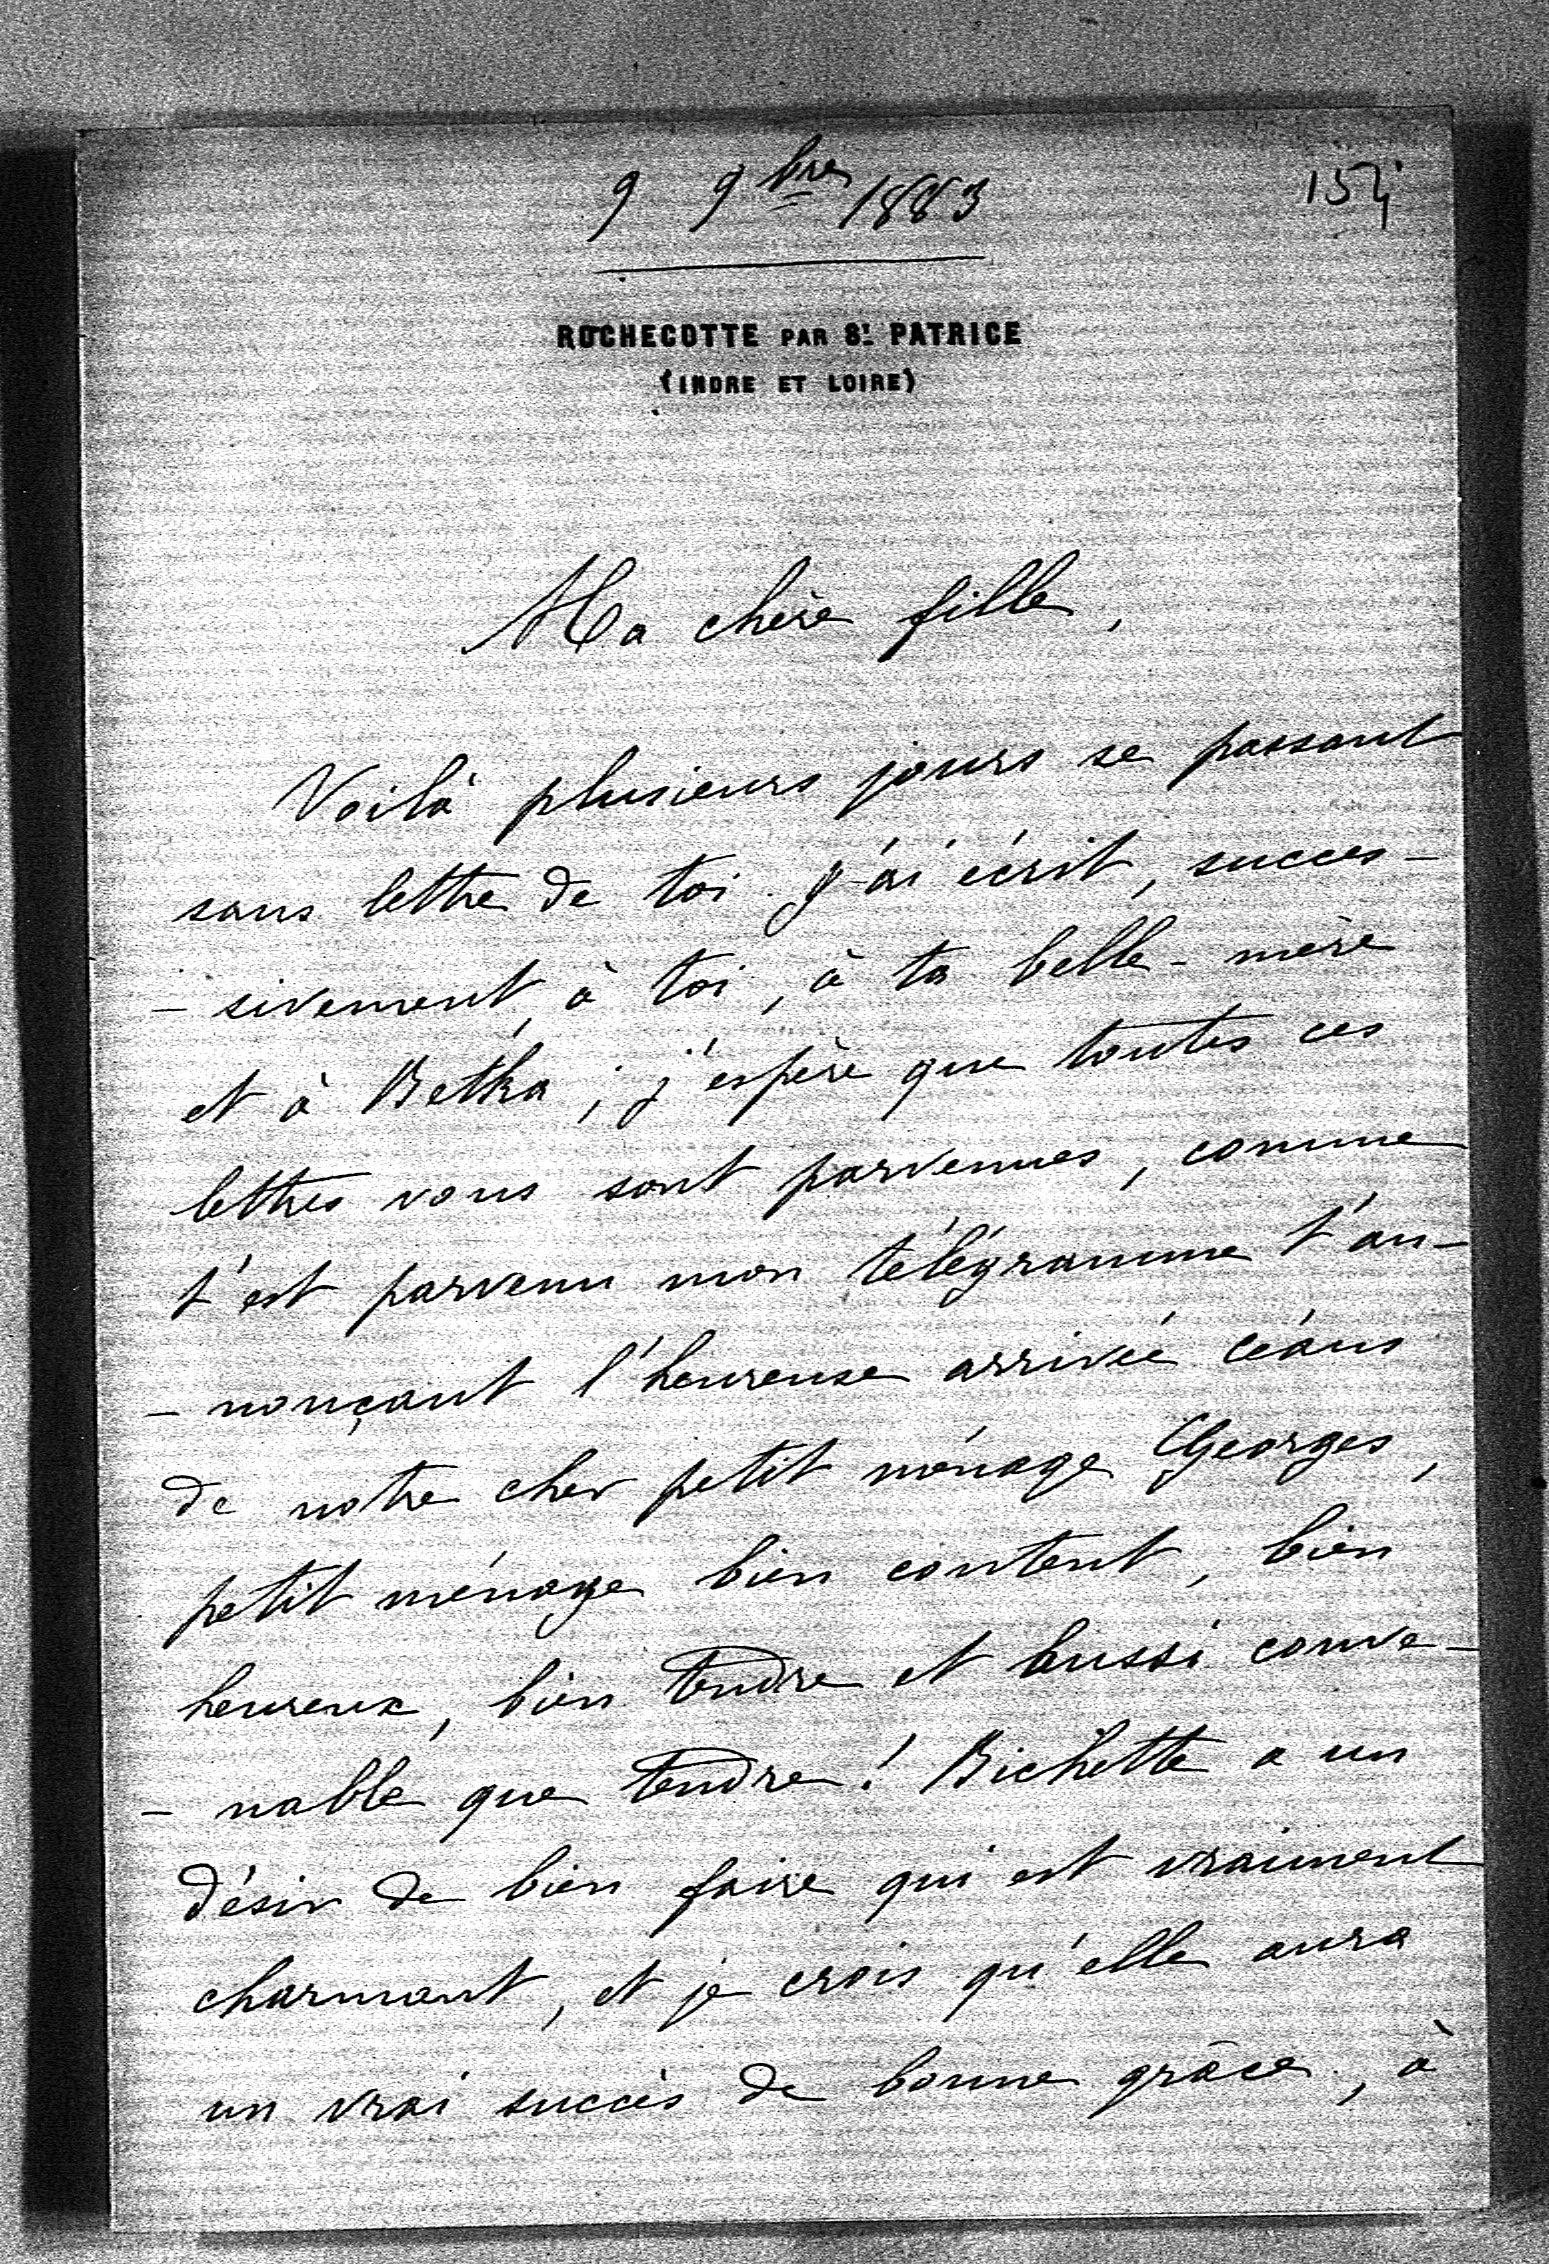 9 9bre 1883
154
ROCHECOTTE PAR St PATRICE
(INDRE ET LOIRE)
Ma chère fille,
Voilà plusieurs jours se passant
sans lettre de toi. J'ai écrit, succes-
-sivement, à toi, à ta belle-mère
et à Betka; j'espère que toutes ces
lettres vous sont parvenues, comme
t'est parvenu mon télégramme t'an-
-nonçant l'heureuse arrivée céans
de notre cher petit ménage Georges,
petit ménage bien content, bien
heureux, bien tendre et aussi conve-
-nable que tendre! Bichette a un
désir de bien faire qui est vraiment
charmant, et je crois qu'elle aura
un vrai succès de bonne grâce, à